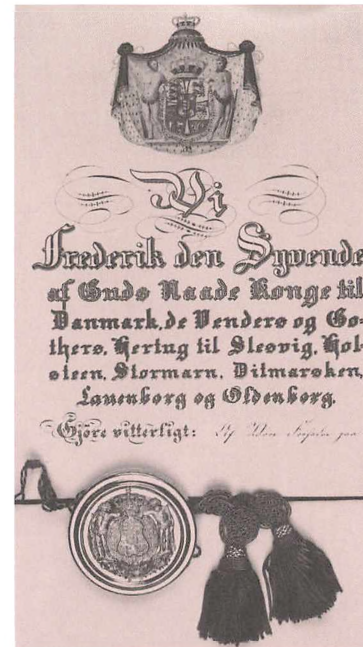 Vi
Frederik den Syvende
af Guds Naade Konge til
Danmark, de Venders og Go-
thers, Hertug til Slesvig, Hol-
steen, Stormarn, Ditmarsken,
Lauenborg og Oldenborg,
Gjöre vitterligt: At Vore